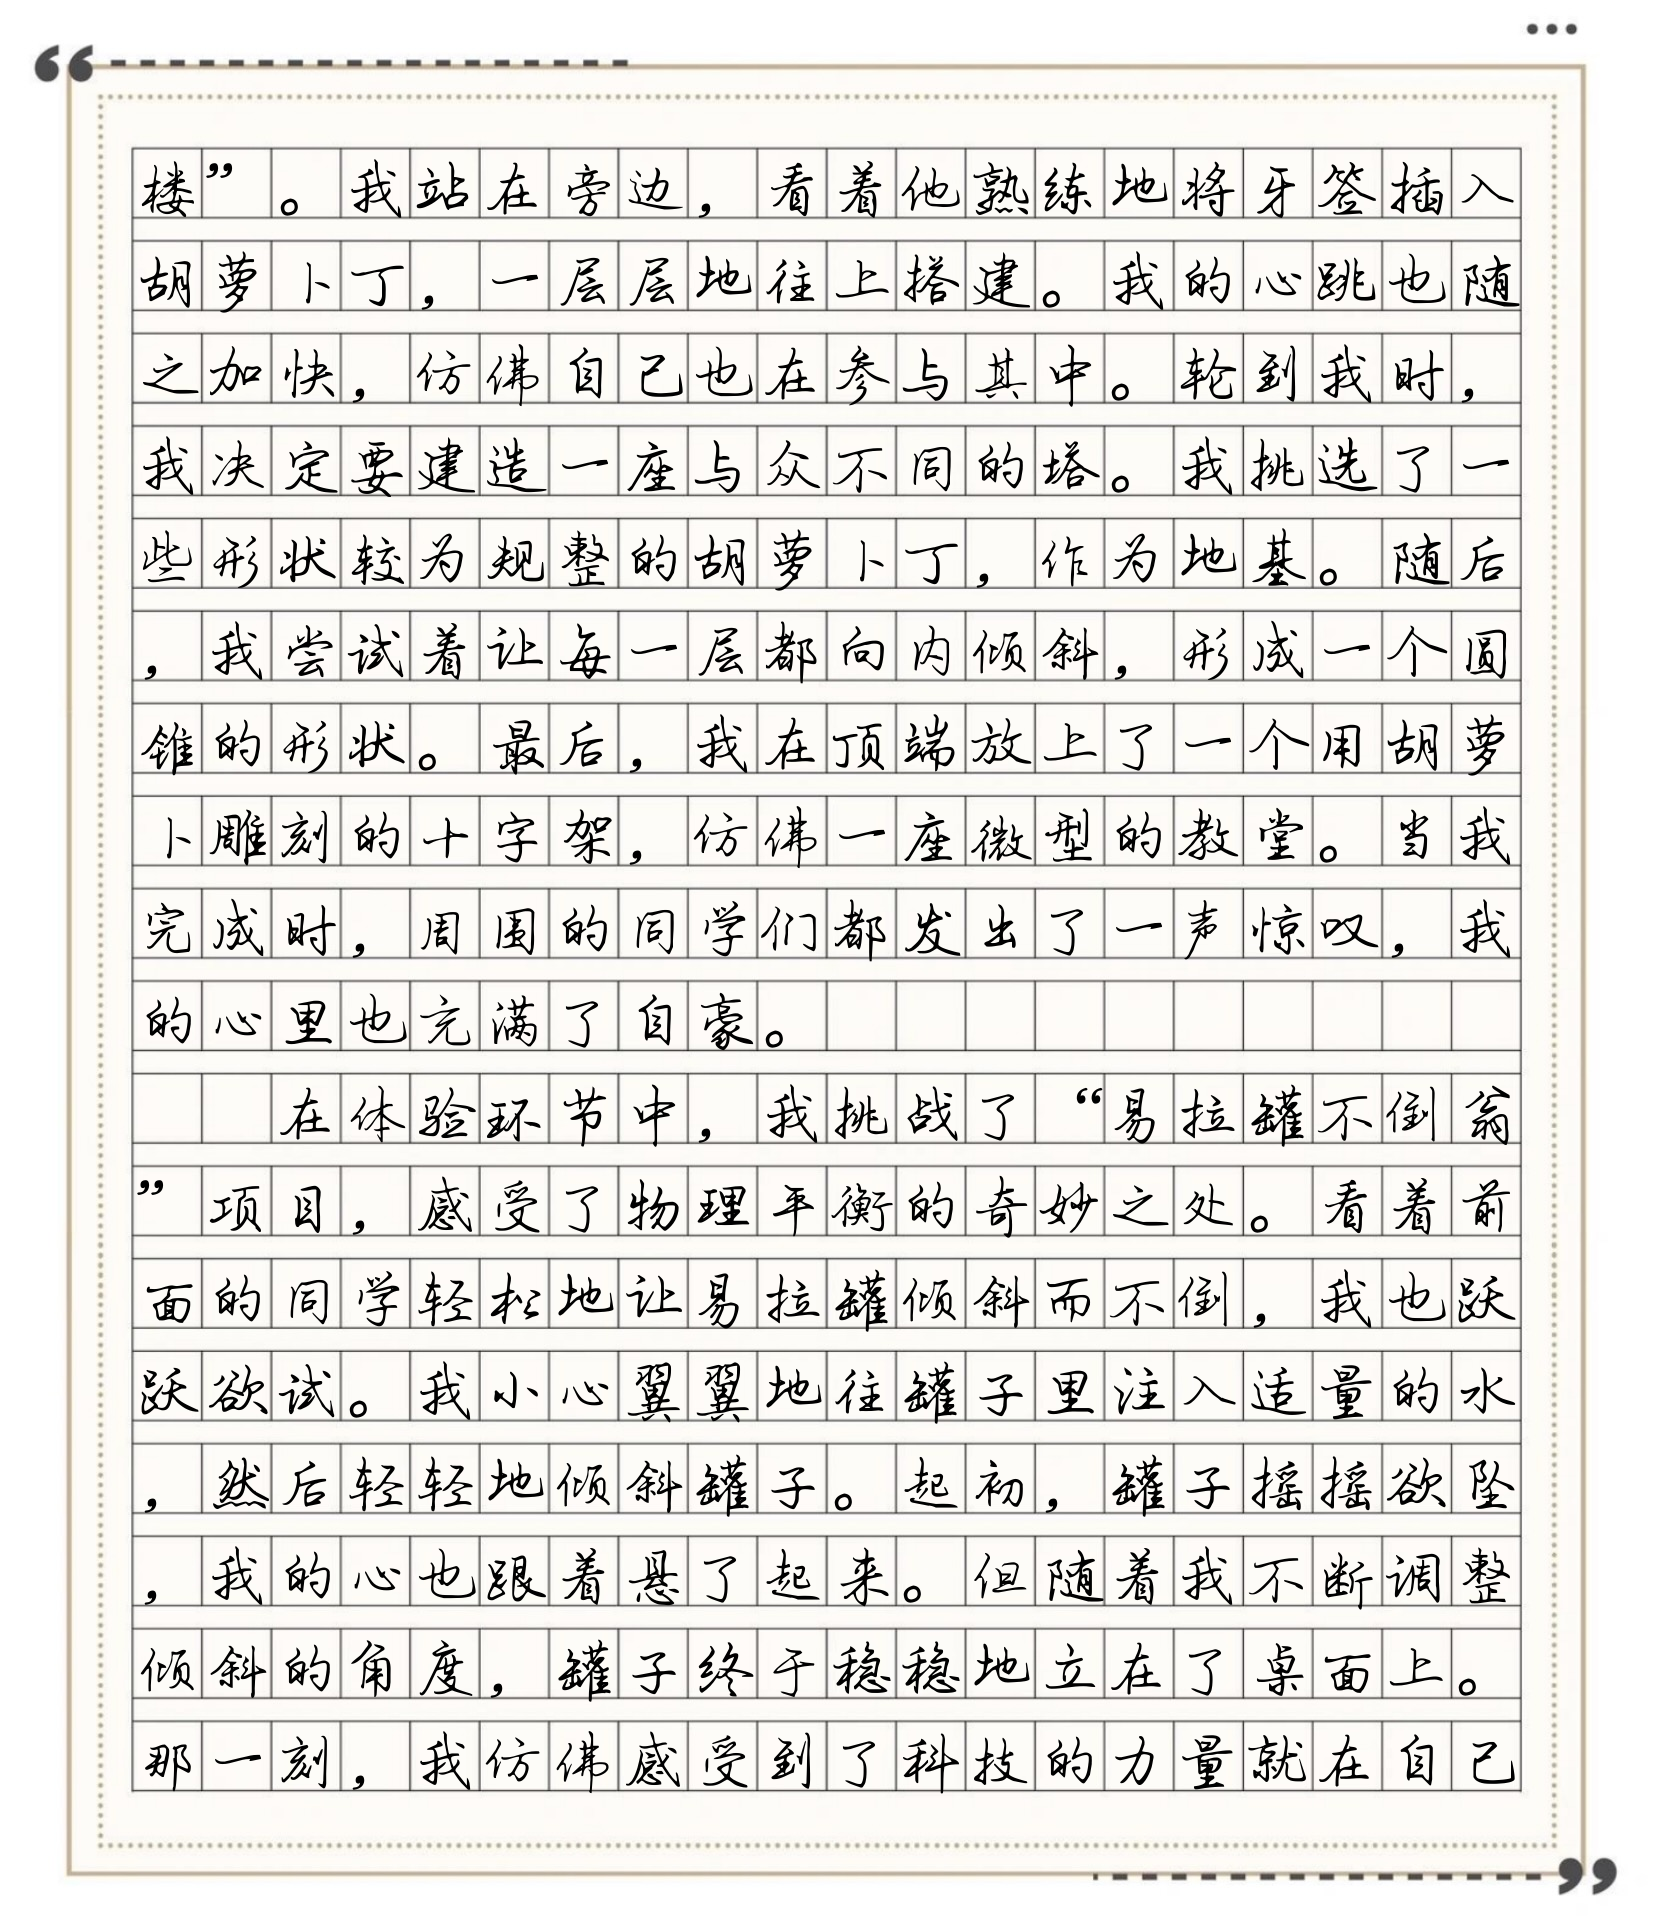 楼”。我站在旁边，看着他熟练地将牙签插入
胡萝卜丁，一层层地往上搭建。我的心跳也随
之加快，仿佛自己也在参与其中。轮到我时，
我决定要建造一座与众不同的塔。我挑选了一
些形状较为规整的胡萝卜丁，作为地基。随后
，我尝试着让每一层都向内倾斜，形成一个圆
锥的形状。最后，我在顶端放上了一个用胡萝
卜雕刻的十字架，仿佛一座微型的教堂。当我
完成时，周围的同学们都发出了一声惊叹，我
的心里也充满了自豪。
在体验环节中，我挑战了“易拉罐不倒翁
”项目，感受了物理平衡的奇妙之处。看着前
面的同学轻松地让易拉罐倾斜而不倒，我也跃
跃欲试。我小心翼翼地往罐子里注入适量的水
，然后轻轻地倾斜罐子。起初，罐子摇摇欲坠
，我的心也跟着悬了起来。但随着我不断调整
倾斜的角度，罐子终于稳稳地立在了桌面上。
那一刻，我仿佛感受到了科技的力量就在自己